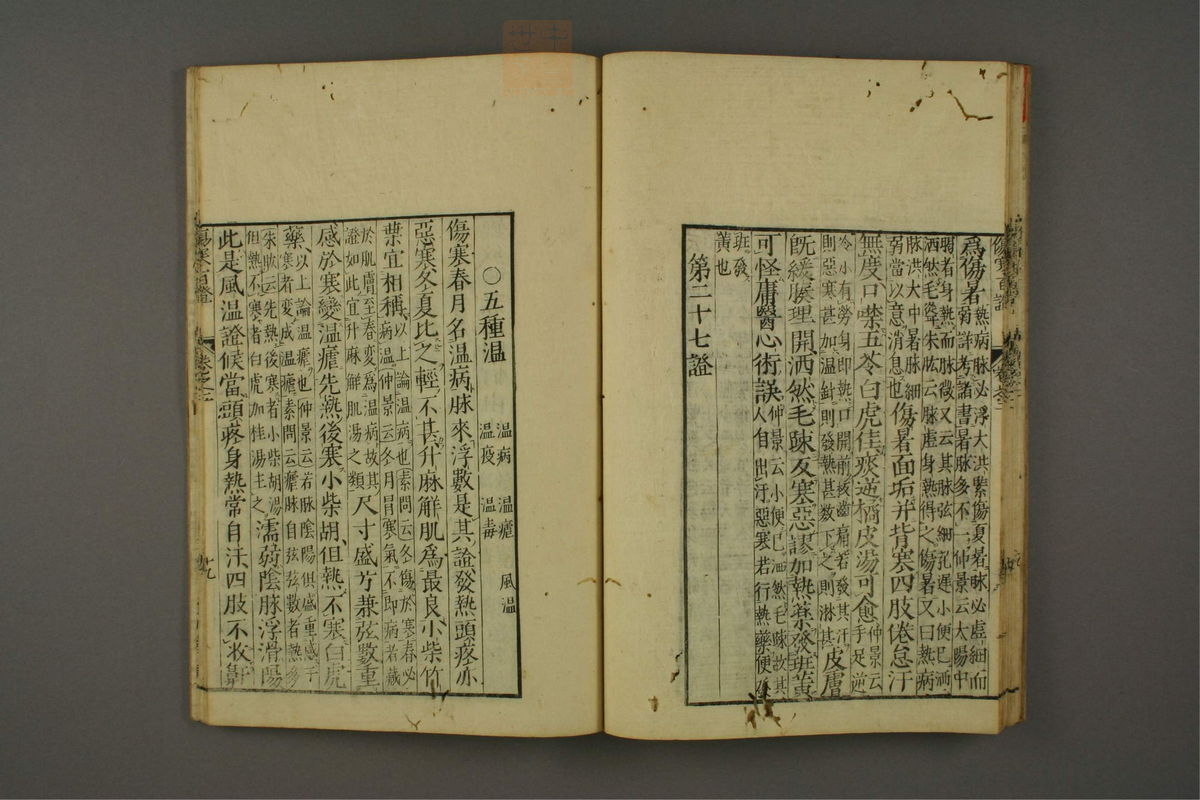 傷寒百證
爲傷暑熱病脉必浮大洪緊傷夏暑脉必虛細而
弱者身熱而脉微又云其脉弦細芤遲小便已洒
洒然毛聳朱肱云脉虛身熱得之傷暑又曰熱病
脉洪大中暑脉細
弱當以意消息也傷暑面垢并背寒四肢倦怠汗
無度口噤五苓白虎佳痰逆橘皮湯可愈仲景云
手足逆
冷小有勞身即熱口開前板齒痛若發其汗
則惡寒甚加温針則發熱甚数下之則淋甚皮膚
既緩腠理開洒然毛踈反寒惡謬加熱藥發班黄
可怪庸醫心術誤仲景云小便已洒然毛踈故其
人自出汗惡寒若行熱藥便爲
班發
黄也
第二十七證
○五種温
温病 温瘧 風温
温疫 温毒
傷寒春月名温病脉來浮數是其證發熱頭疼亦
惡寒冬夏比之輕不甚升麻解肌爲最良小柴竹
葉宜相稱以上論温病也素問云冬傷於寒春必
病温仲景云冬月冒寒氣不即病者藏
於肌膚至春変爲温病故其
證如此宜升麻解肌湯之類尺寸盛方兼弦數重
感於寒變温瘧先熱後寒小柴胡但熱不寒白虎
藥以上論温瘧也仲景云若脉陰陽俱盛重感于
寒者变成温瘧素問云瘧脉自弦弦數者熱多
朱肱云先熱後寒者小柴胡湯
但熱不寒者白虎加桂湯主之濡弱陰脉浮滑陽
此是風温證候當頭疼身熱常自汗四肢不收鼾